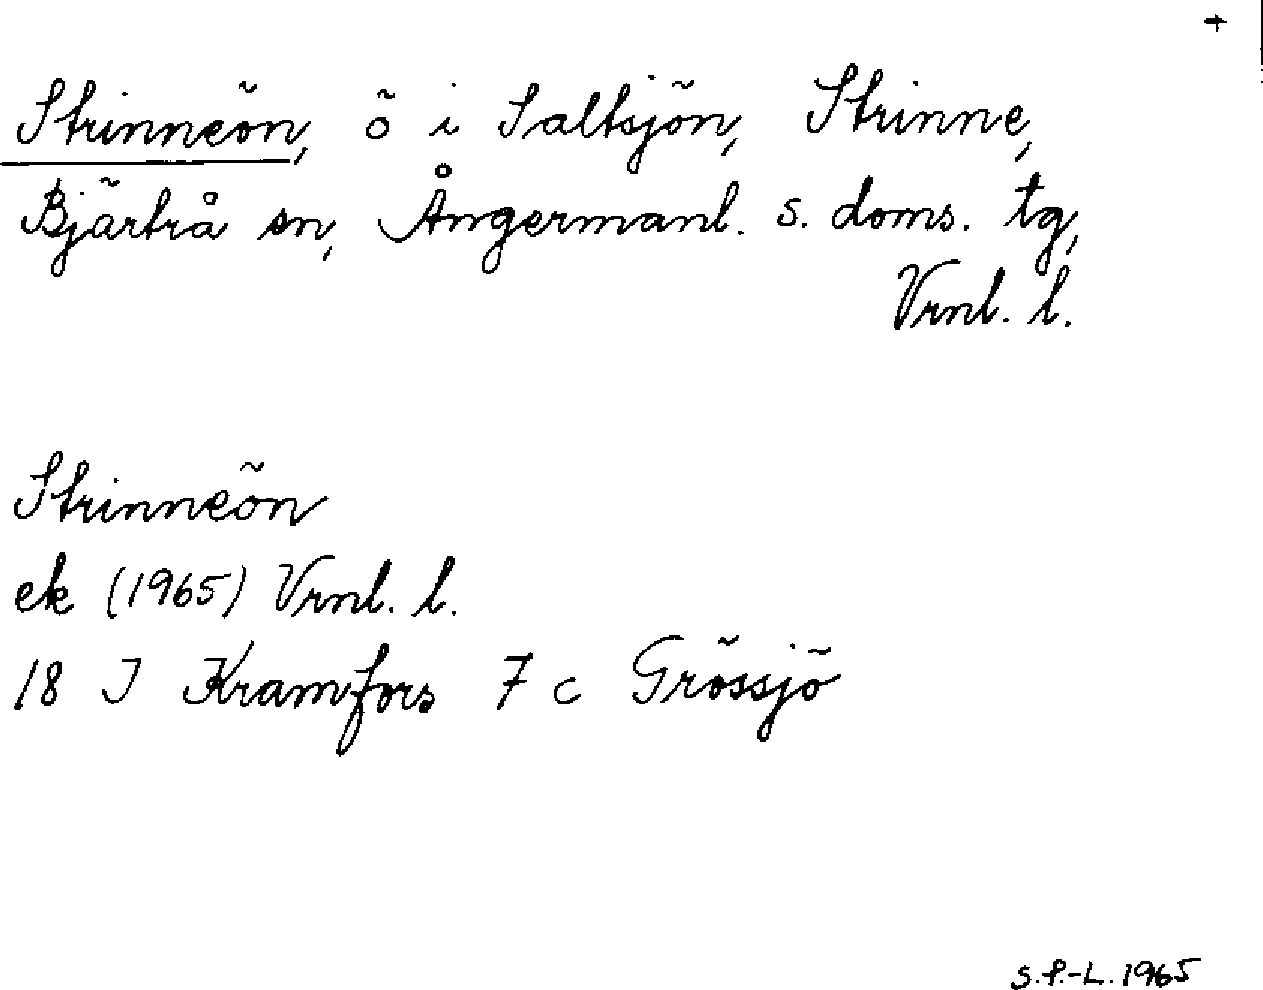 +
Strinneön, ö i Saltsjön, Strinne,
Bjärtrå sn, Ångermanl. s. doms. tg,
Vrnl. l.
Strinneön
ek (1965) Vrnl. l.
18 I Kramfors 7 c Grössjö
S.P.-L. 1965